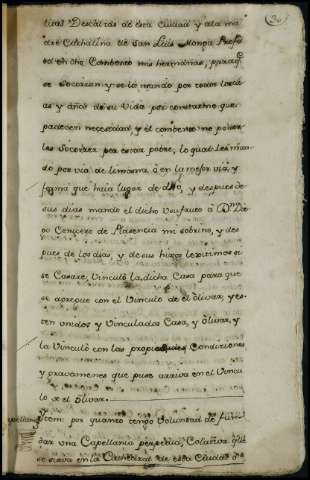 litas Descalsas de esta Ciudad y a la ma
dre Cathalina de San Luis Monja Profe
sa en dho Combento mis hermanas, para q̃
se Socorran y se lo mando por todos los di
as y años de su Vida por constarme que
padecen necesidad, y el combento no poder
les Socorrer por estar pobre, lo qual les man
do por via de limosna, ô en la mejor via, y
forma que haia lugar de dr̃o, y despues de
sus dias mando el dicho Vsufruto â Dn
Cenicero de Plasencia mi sobrino, y des
pues de los dias, y de sus hijos lexitimos si
se Casare, Vinculo la dicha Casa para que
se agregue con el Vinculo de el olivar, y es
ten unidos y Vinculados Casa, y Olivar, y
la Vinculo con las propias Condiciones
y gravamenes que puse arriva en el Vincu
lo de el Olivar.
Item: por quanto tengo Voluntad de fun
dar vna Capellania perpetua, Colativa que
se sirva en la Cathedral de esta Ciudad